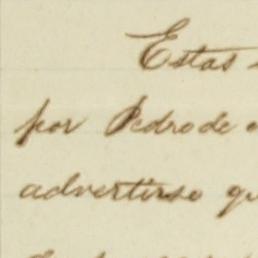 Estas
por Pedro de
advertirse qu